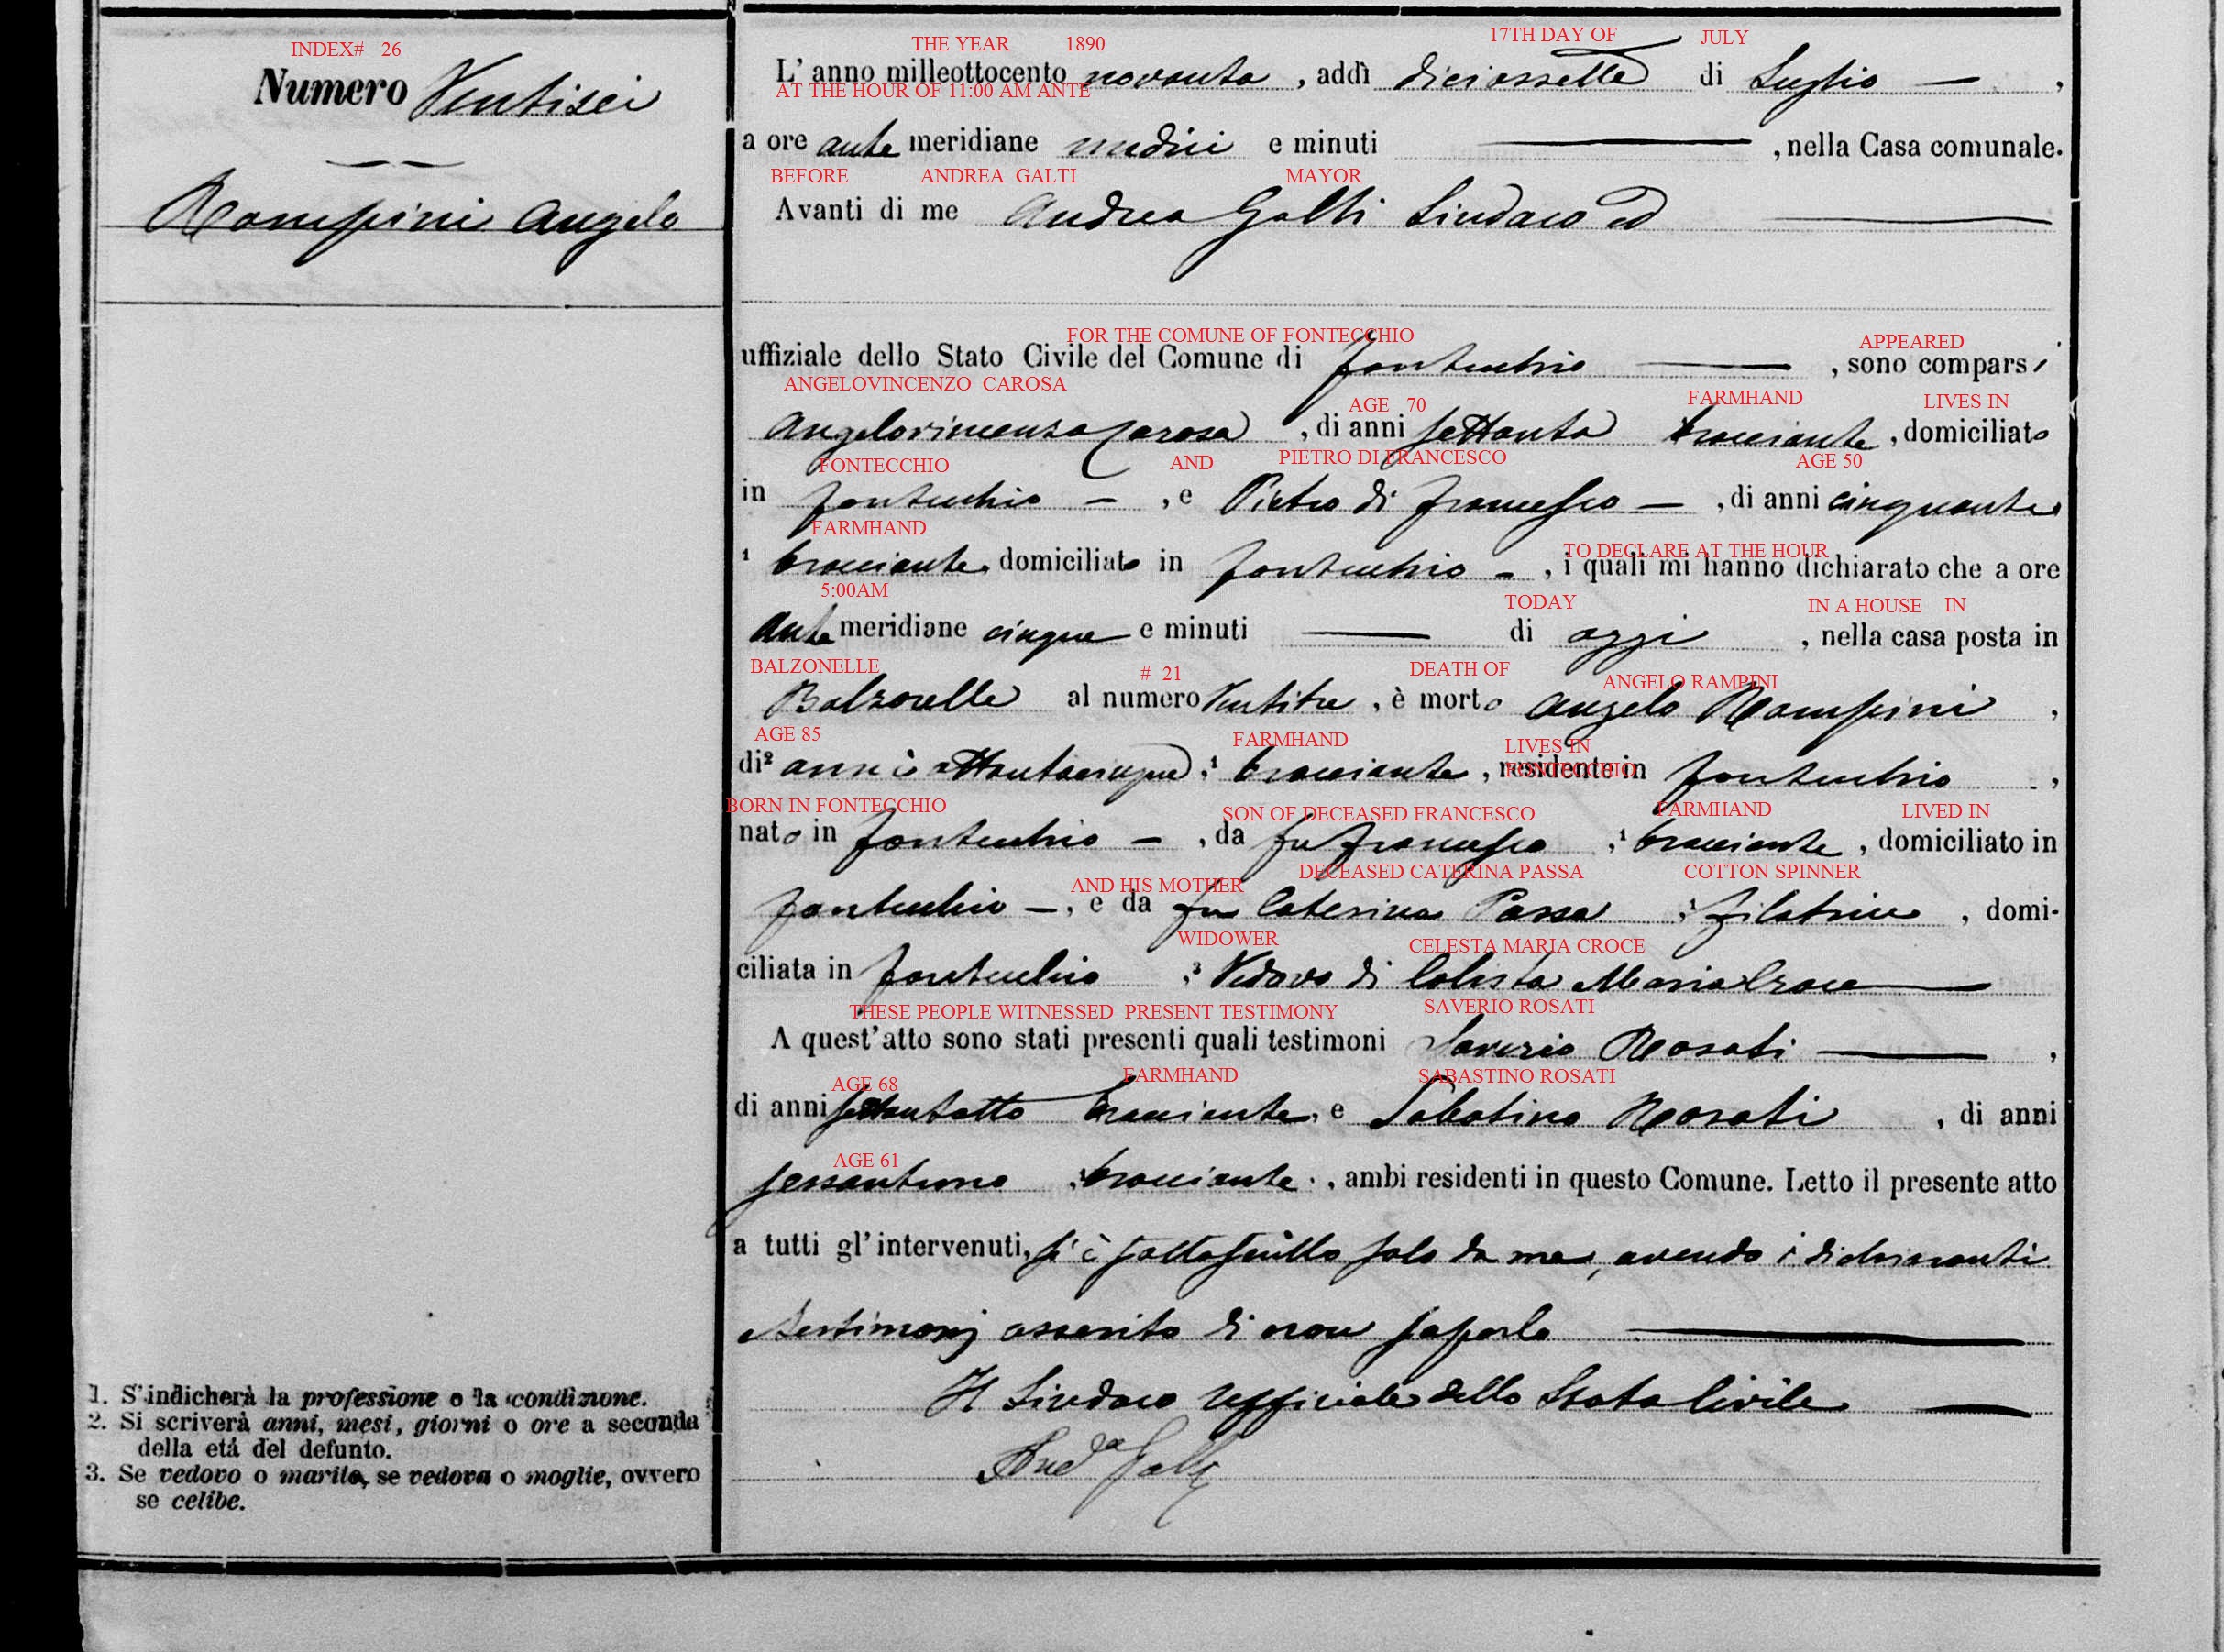 INDEX# 26
Numero Ventisei
Rampini Angelo
THE YEAR 1890 17TH DAY OF JULY
L'anno milleottocento novanta, addì diciassette di Luglio —,
AT THE HOUR OF 11:00 AM ANTE
a ore ante meridiane undici e minuti —, nella Casa comunale.
BEFORE ANDREA GALTI MAYOR
Avanti di me Andrea Galli Sindaco ed —
FOR THE COMUNE OF FONTECCHIO APPEARED
uffiziale dello Stato Civile del Comune di Fontecchio —, sono comparsi
ANGELOVINCENZO CAROSA AGE 70 FARMHAND LIVES IN
Angelovincenzo Carosa, di anni settanta bracciante, domiciliato
FONTECCHIO AND PIETRO DI FRANCESCO AGE 50
in Fontecchio —, e Pietro di Francesco —, di anni cinquanta
FARMHAND TO DECLARE AT THE HOUR
1 bracciante domiciliato in Fontecchio —, i quali mi hanno dichiarato che a ore
5:00AM TODAY IN A HOUSE IN
ante meridiane cinque e minuti — di oggi, nella casa posta in
BALZONELLE # 21 DEATH OF ANGELO RAMPINI
Balzonelle al numero Ventitre, è morto Angelo Rampini,
AGE 85 FARMHAND LIVES IN
di2 anni ottantacinque,1 bracciante, residente in Fontecchio,
BORN IN FONTECCHIO SON OF DECEASED FRANCESCO FARMHAND LIVED IN
nato in Fontecchio —, da fu Francesco,1 bracciante, domiciliato in
AND HIS MOTHER DECEASED CATERINA PASSA COTTON SPINNER
Fontecchio —, e da fu Caterina Passa,1 filatrice, domi-
WIDOWER CELESTA MARIA CROCE
ciliata in Fontecchio,3 Vedovo di Celesta Maria Croce —
THESE PEOPLE WITNESSED PRESENT TESTIMONY SAVERIO ROSATI
A quest'atto sono stati presenti quali testimoni Saverio Rosati —,
AGE 68 FARMHAND SABASTINO ROSATI
di anni bracciante, e Sabatino Rosati, di anni
AGE 61
sessantuno,1 bracciante, ambi residenti in questo Comune. Letto il presente atto
a tutti gl'intervenuti, si è sottoscritto solo da me, avendo i dichiaranti
testimonj asserito di non saperlo —
Il Sindaco Uffiziale dello Stato Civile —
Andª Galli
1. S'indicherà la professione o la condizione.
2. Si scriverà anni, mesi, giorni o ore a seconda
della età del defunto.
3. Se vedovo o marito, se vedova o moglie, ovvero
se celibe.